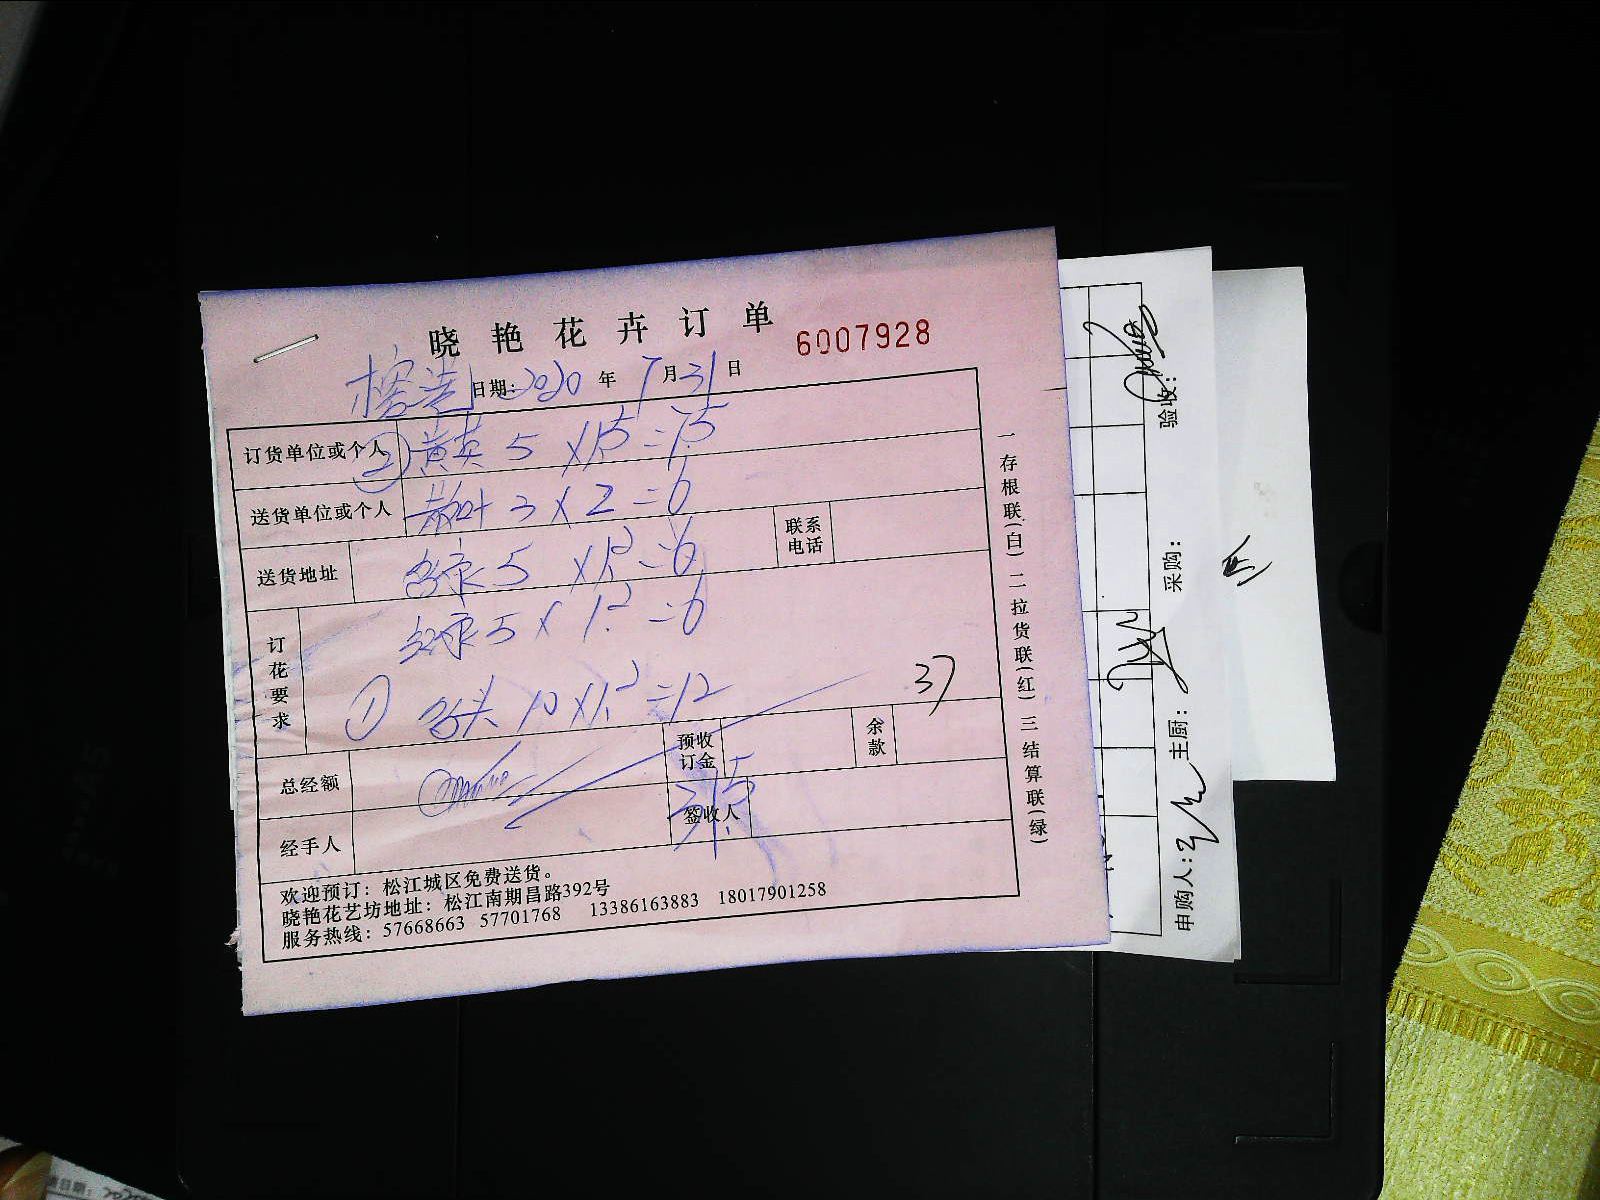 晓艳花卉订单
6007928
日期: 2020 年 7 月 31 日
订货单位或个人 ② 黄英 5 × 1.5 = 7.5
送货单位或个人 散叶 3 × 2 = 6
送货地址 5 × 1.2 = 6 联系电话
订花要求 5 × 1.2 = 6
① 10 × 1.2 = 12
37
总经额 预收订金 余款
经手人 签收人
37.5
欢迎预订: 松江城区免费送货。
晓艳花艺坊地址: 松江南期昌路392号
服务热线: 57668663 57701768 13386163883 18017901258
一存根联(白) 二拉货联(红) 三结算联(绿)
申购人: 主厨: 采购: 验收: